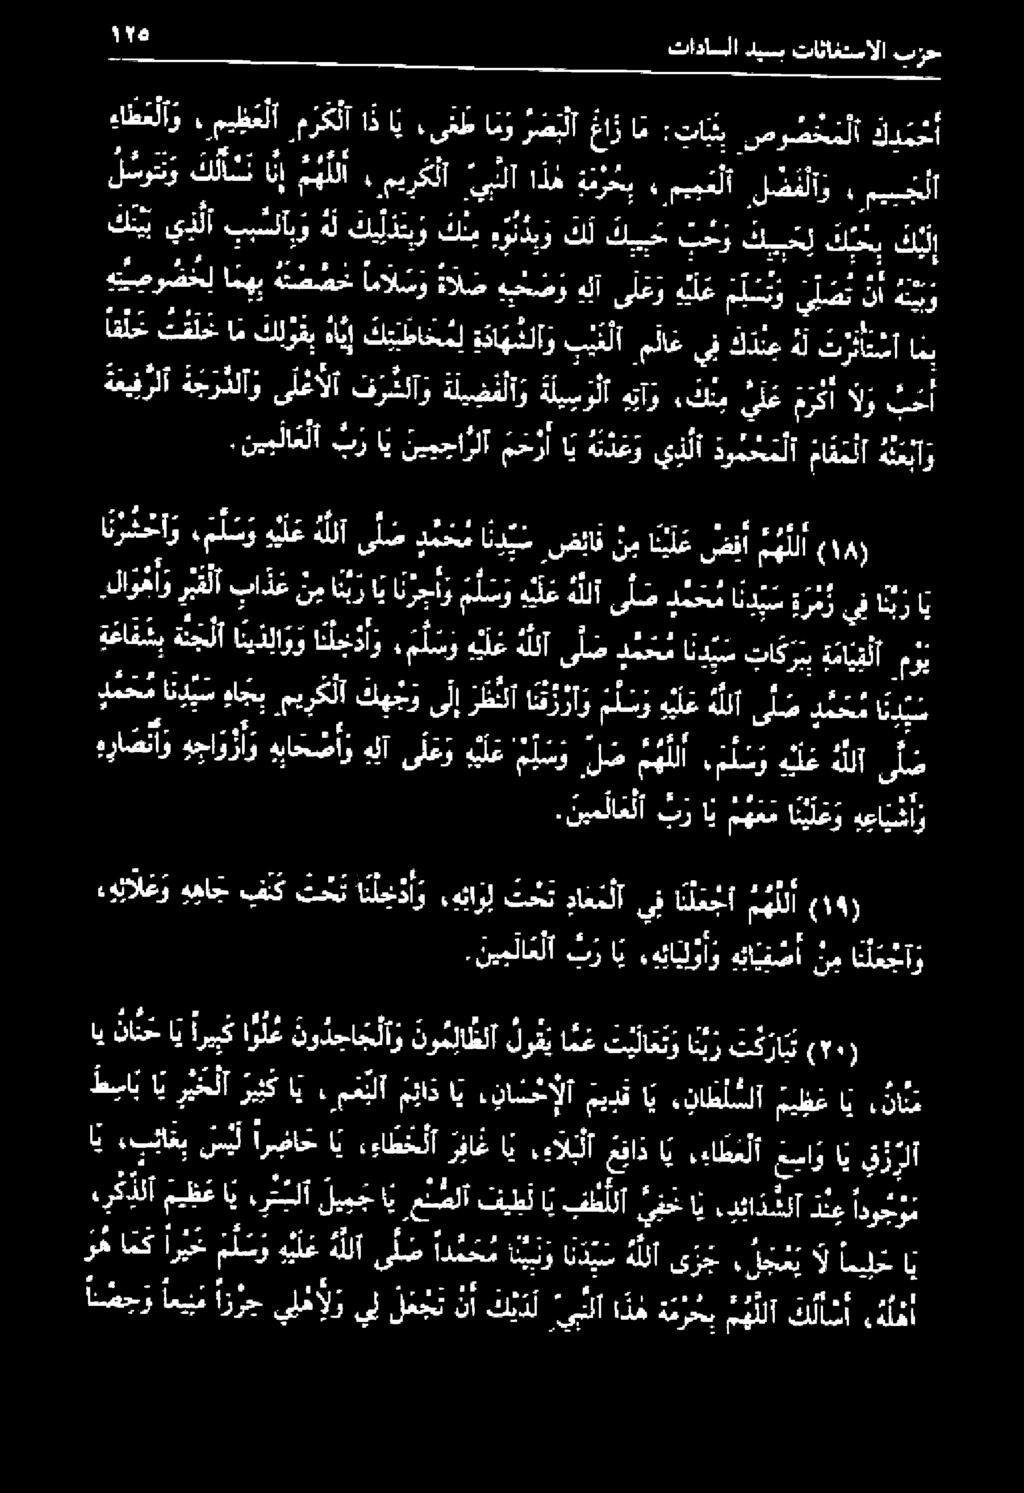 حزب الاستغاثات بسيد السادات
١٢٥
أَحْمَدِكَ ٱلْمَخْصُوصِ بِثَبَاتِ: مَا زَاغَ ٱلْبَصَرُ وَمَا طَغَى، يَا ذَا ٱلْكَرَمِ ٱلْعَظِيمِ، وَٱلْعَطَاءِ
ٱلْجَسِيمِ، وَٱلْفَضْلِ ٱلْعَمِيمِ، بِحُرْمَةِ هَذَا ٱلنَّبِيِّ ٱلْكَرِيمِ، ٱللَّهُمَّ إِنَّا نَسْأَلُكَ وَنَتَوَسَّلُ
إِلَيْكَ بِحُبِّكَ لِحَبِيبِكَ وَحُبِّ حَبِيبِكَ لَكَ وَبِدُنُوِّهِ مِنْكَ وَبِتَدَلِّيكَ لَهُ وَبِٱلسَّبَبِ ٱلَّذِي بَيْنَكَ
وَبَيْنَهُ أَنْ تُصَلِّيَ وَتُسَلِّمَ عَلَيْهِ وَعَلَى آلِهِ وَصَحْبِهِ صَلاَةً وَسَلاَماً خَصَّصْتَهُ بِهِمَا لِخُصُوصِيَّتِهِ
بِمَا ٱسْتَأْثَرْتَ لَهُ عِنْدَكَ فِي عَالَمِ ٱلْغَيْبِ وَٱلشَّهَادَةِ لِمُخَاطَبَتِكَ إِيَّاهُ بِقَوْلِكَ مَا خَلَقْتُ خَلْقاً
أَحَبَّ وَلاَ أَكْرَمَ عَلَيَّ مِنْكَ، وَآتِهِ ٱلْوَسِيلَةَ وَٱلْفَضِيلَةَ وَٱلشَّرَفَ ٱلأَعْلَى وَٱلدَّرَجَةَ ٱلرَّفِيعَةَ
وَٱبْعَثْهُ ٱلْمَقَامَ ٱلْمَحْمُودَ ٱلَّذِي وَعَدْتَهُ يَا أَرْحَمَ ٱلرَّاحِمِينَ يَا رَبَّ ٱلْعَالَمِينَ.
(١٨) ٱللَّهُمَّ أَفِضْ عَلَيْنَا مِنْ فَائِضِ سَيِّدِنَا مُحَمَّدٍ صَلَّى ٱللَّهُ عَلَيْهِ وَسَلَّمَ، وَٱحْشُرْنَا
يَا رَبَّنَا فِي زُمْرَةِ سَيِّدِنَا مُحَمَّدٍ صَلَّى ٱللَّهُ عَلَيْهِ وَسَلَّمَ وَأَجِرْنَا يَا رَبَّنَا مِنْ عَذَابِ ٱلْقَبْرِ وَأَهْوَالِ
يَوْمِ ٱلْقِيَامَةِ بِبَرَكَاتِ سَيِّدِنَا مُحَمَّدٍ صَلَّى ٱللَّهُ عَلَيْهِ وَسَلَّمَ، وَأَدْخِلْنَا وَوَالِدِينَا ٱلْجَنَّةَ بِشَفَاعَةِ
سَيِّدِنَا مُحَمَّدٍ صَلَّى ٱللَّهُ عَلَيْهِ وَسَلَّمَ وَٱرْزُقْنَا ٱلنَّظَرَ إِلَى وَجْهِكَ ٱلْكَرِيمِ بِجَاهِ سَيِّدِنَا مُحَمَّدٍ
صَلَّى ٱللَّهُ عَلَيْهِ وَسَلَّمَ، ٱللَّهُمَّ صَلِّ وَسَلِّمْ عَلَيْهِ وَعَلَى آلِهِ وَأَصْحَابِهِ وَأَزْوَاجِهِ وَأَنْصَارِهِ
وَأَشْيَاعِهِ وَعَلَيْنَا مَعَهُمْ يَا رَبَّ ٱلْعَالَمِينَ.
(١٩) ٱللَّهُمَّ ٱجْعَلْنَا فِي ٱلْمَعَادِ تَحْتَ لِوَائِهِ، وَأَدْخِلْنَا تَحْتَ كَنَفِ جَاهِهِ وَعَلاَئِهِ،
وَٱجْعَلْنَا مِنْ أَصْفِيَائِهِ وَأَوْلِيَائِهِ، يَا رَبَّ ٱلْعَالَمِينَ.
(٢٠) تَبَارَكْتَ رَبَّنَا وَتَعَالَيْتَ عَمَّا يَقُولُ ٱلظَّالِمُونَ وَٱلْجَاحِدُونَ عُلُوّاً كَبِيراً يَا حَنَّانُ يَا
مَنَّانُ، يَا عَظِيمَ ٱلسُّلْطَانِ، يَا قَدِيمَ ٱلإِحْسَانِ، يَا دَائِمَ ٱلنِّعَمِ، يَا كَثِيرَ ٱلْخَيْرِ يَا بَاسِطَ
ٱلرِّزْقِ يَا وَاسِعَ ٱلْعَطَاءِ، يَا دَافِعَ ٱلْبَلاَءِ، يَا غَافِرَ ٱلْخَطَاءِ، يَا حَاضِراً لَيْسَ بِغَائِبٍ، يَا
مَوْجُوداً عِنْدَ ٱلشَّدَائِدِ، يَا خَفِيَّ ٱللُّطْفِ يَا لَطِيفَ ٱلصُّنْعِ يَا جَمِيلَ ٱلسِّتْرِ، يَا عَظِيمَ ٱلذِّكْرِ،
يَا حَلِيماً لاَ يَعْجَلُ، جَزَى ٱللَّهُ سَيِّدَنَا وَنَبِيَّنَا مُحَمَّداً صَلَّى ٱللَّهُ عَلَيْهِ وَسَلَّمَ خَيْراً كَمَا هُوَ
أَهْلُهُ، أَسْأَلُكَ ٱللَّهُمَّ بِحُرْمَةِ هَذَا ٱلنَّبِيِّ لَدَيْكَ أَنْ تَجْعَلَ لِي وَلأَهْلِي حِرْزاً مَنِيعاً وَحِصْناً